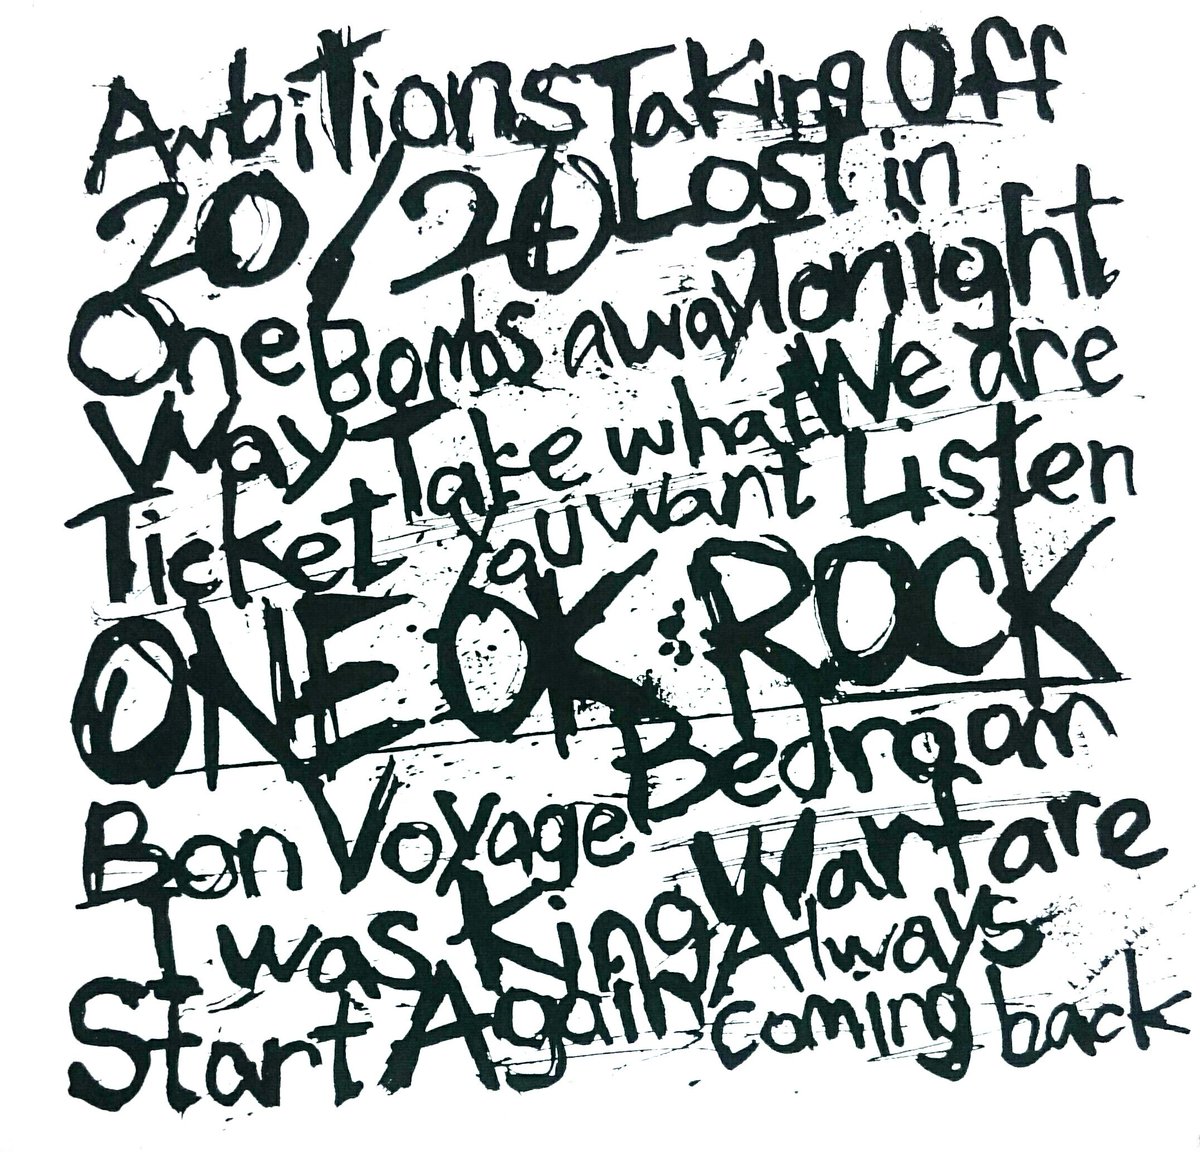 Ambitions Taking Off
20/20 Lost in
One Bombs away Tonight
Way Take what We are
Ticket you want Listen
ONE OK ROCK
Bedroom
Bon Voyage Warfare
I was King Always
Start Again coming back